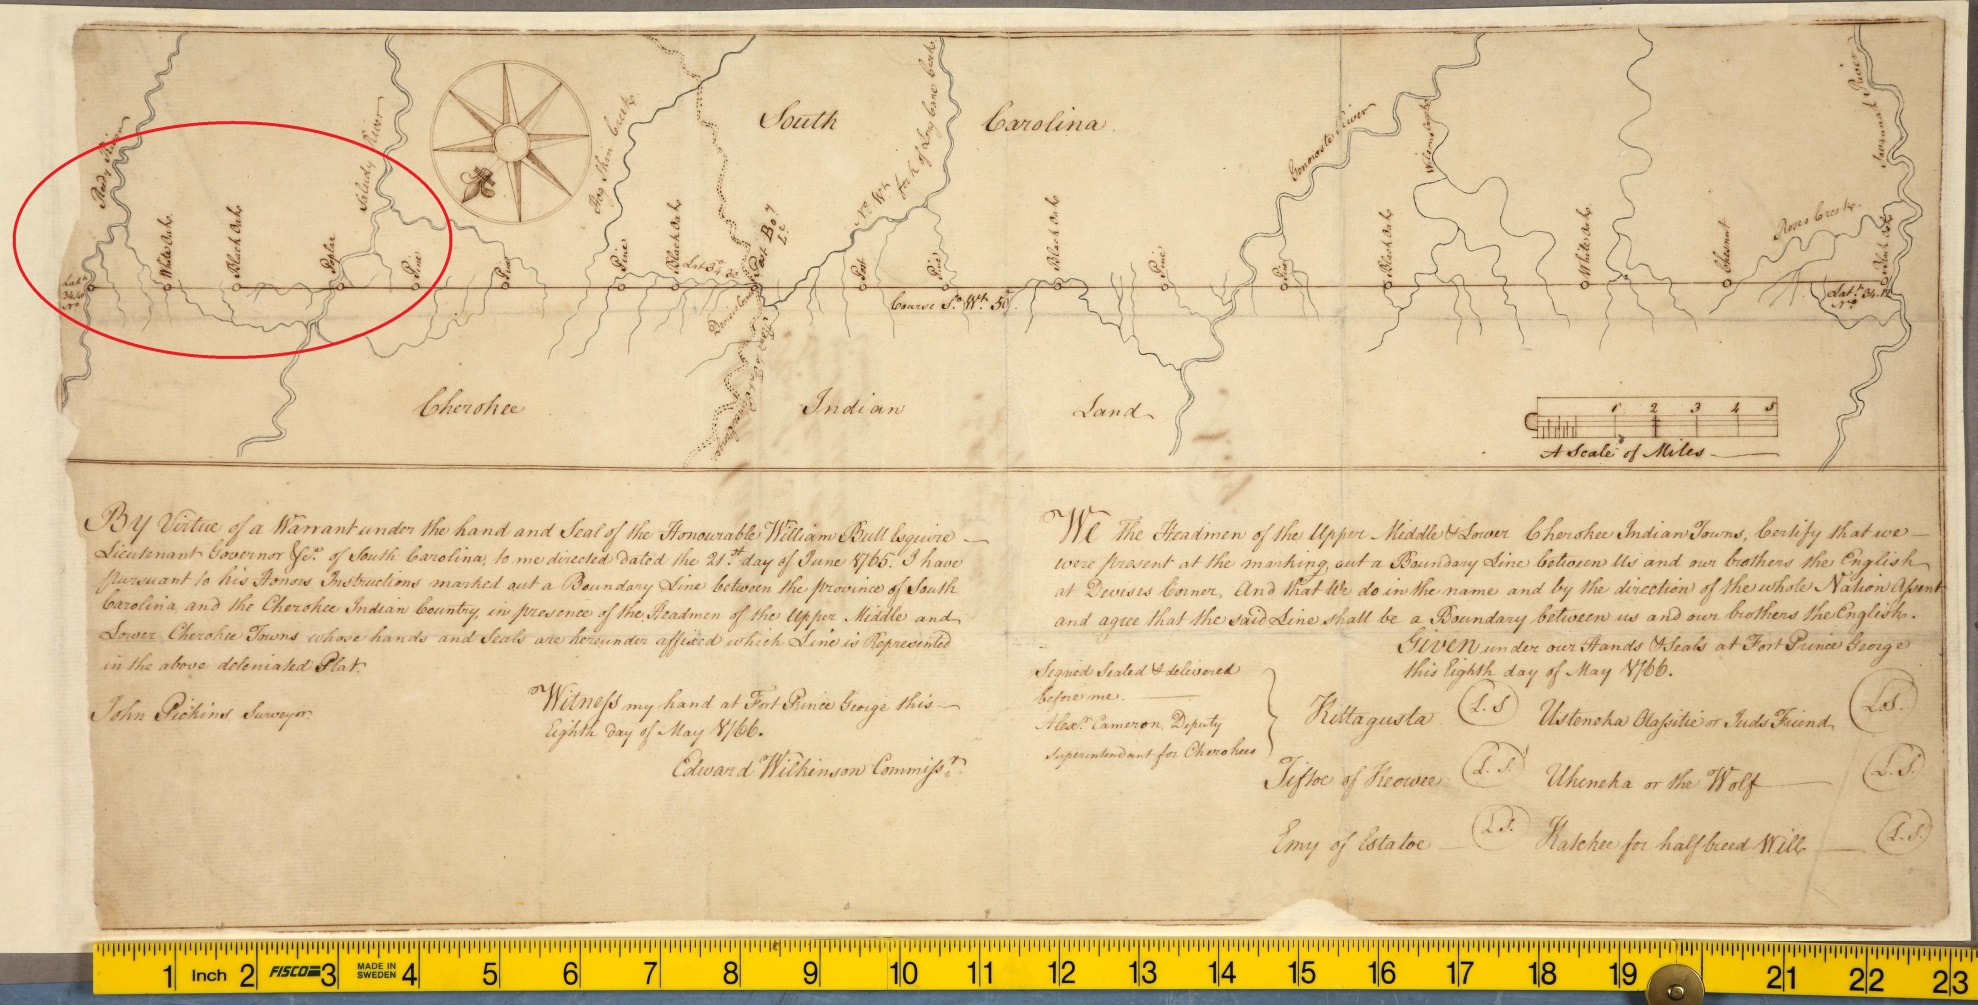 South Carolina
Reedy River
Saludy River
Hog Skin Creek
No. Wt. fork of Long Cane Creek
Generostee River
Savannah River
Roses Creek
Lat.
34..
No.
White Oak
Black Oak
Poplar
Pine
Pine
Pine
Black Oak
Post
Pine
Black Oak
Pine
Pine
Black Oak
White Oak
Chesnut
Black Oak
Course So. Wt. 50
Cherokee Indian Land
1 2 3 4 5
A Scale of Miles
By Virtue of a Warrant under the hand and Seal of the Honourable William Bull Esquire
Lieutenant Governor &c. of South Carolina, to me directed dated the 21st day of June 1765. I have
pursuant to his Honors Instructions marked out a Boundary Line between the province of South
Carolina, and the Cherokee Indian Country, in presence of the Headmen of the Upper Middle and
Lower Cherokee Towns whose hands and Seals are hereunder affixed which Line is Represented
in the above deleniated Plat.
John Pickins Surveyor.
Witness my hand at Fort Prince George this
Eighth day of May 1766.
Edward Wilkinson Commissr.
We the Headmen of the Upper Middle & Lower Cherokee Indian Towns, Certify that we
were present at the marking out a Boundary Line between Us and our brothers the English
at Devises Corner, And that We do in the name and by the direction of the whole Nation Assent
and agree that the said Line shall be a Boundary between us and our brothers the English.
Given under our Hands & Seals at Fort Prince George
this Eighth day of May 1766.
Signed Sealed & delivered
before me.
Alexr. Cameron Deputy
Superintendant for Cherokees
Kittagusta L.S Usteneka Otassitie or Juds Friend L.S.
Tiftoe of Keowee L.S. Uheneka or the Wolf L.S.
Emy of Estatoe L.S. Katchee for halfbreed Will L.S.
1 Inch 2 FISCO 3 MADE IN SWEDEN 4 5 6 7 8 9 10 11 12 13 14 15 16 17 18 19 21 22 23